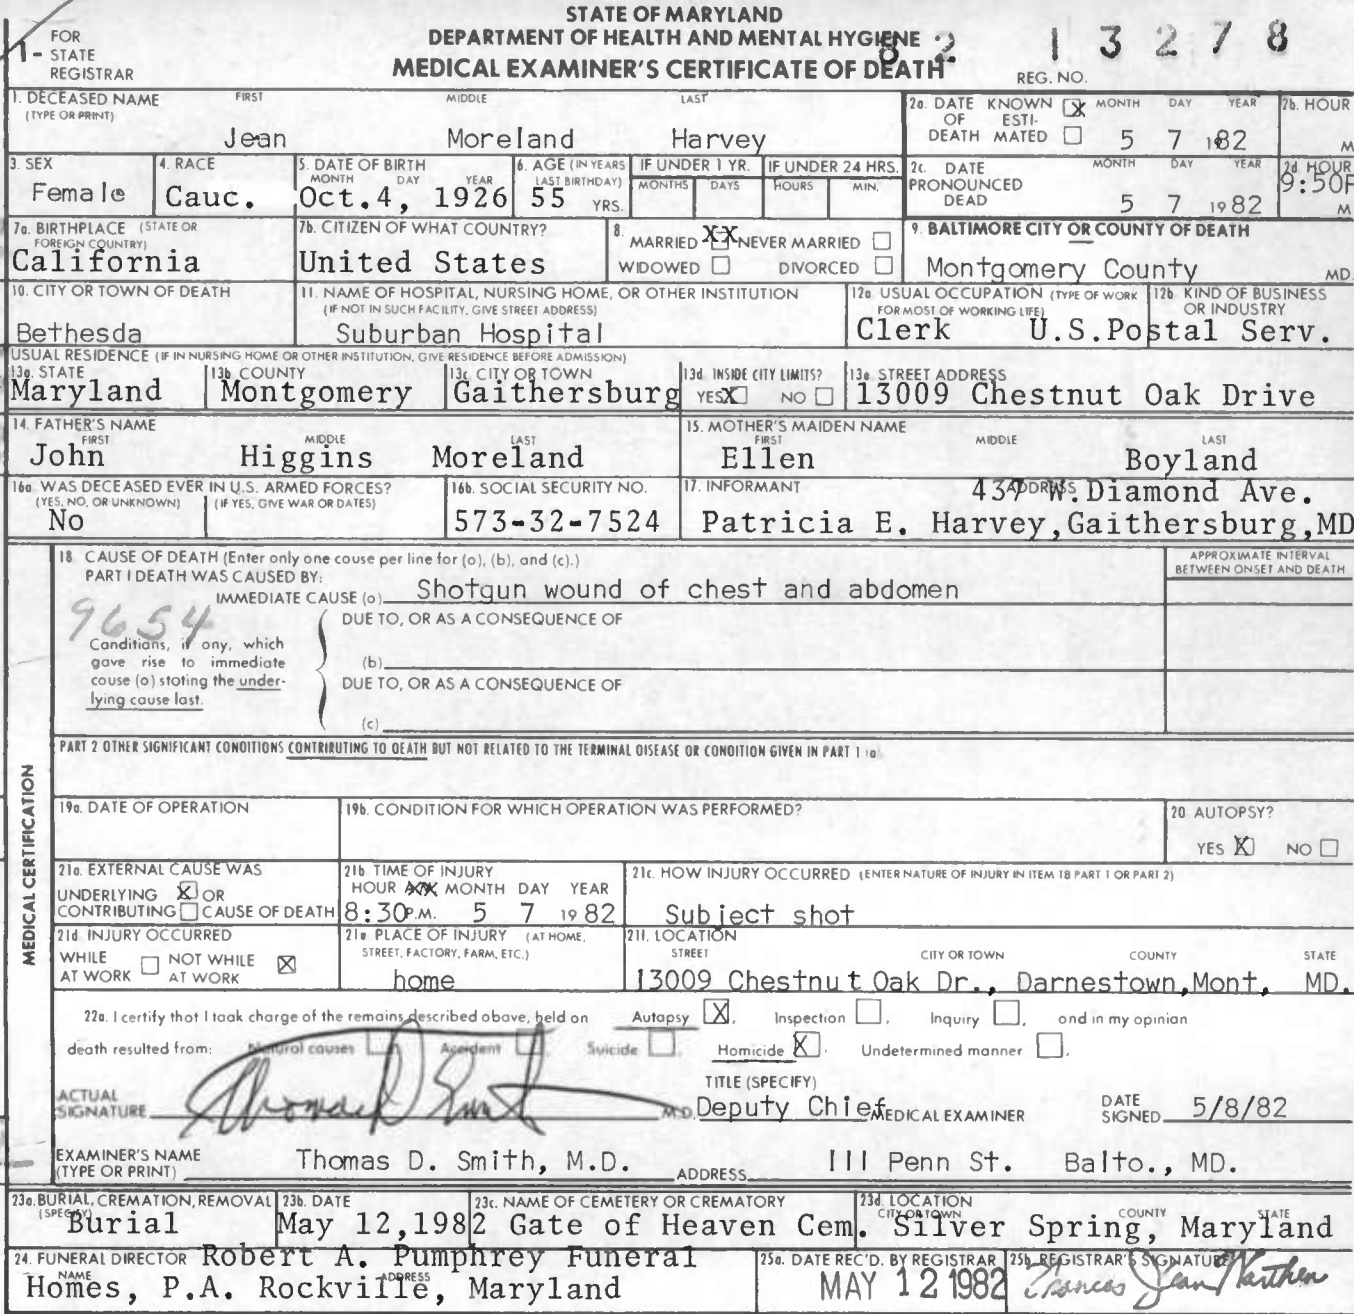 STATE OF MARYLAND
DEPARTMENT OF HEALTH AND MENTAL HYGIENE
MEDICAL EXAMINER'S CERTIFICATE OF DEATH
1- FOR STATE REGISTRAR
REG. NO. 82 13278
1. DECEASED NAME (TYPE OR PRINT) FIRST MIDDLE LAST
Jean Moreland Harvey
2a. DATE OF DEATH KNOWN [X] ESTIMATED [ ] MONTH DAY YEAR
5 7 1982
2b. HOUR M
3. SEX
Female
4. RACE
Cauc.
5. DATE OF BIRTH MONTH DAY YEAR
Oct. 4, 1926
6. AGE (IN YEARS LAST BIRTHDAY)
55 YRS.
IF UNDER 1 YR. MONTHS DAYS
IF UNDER 24 HRS. HOURS MIN.
2c. DATE PRONOUNCED DEAD MONTH DAY YEAR
5 7 1982
2d HOUR
9:50P M
7a. BIRTHPLACE (STATE OR FOREIGN COUNTRY)
California
7b. CITIZEN OF WHAT COUNTRY?
United States
8. MARRIED XX NEVER MARRIED [ ]
WIDOWED [ ] DIVORCED [ ]
9. BALTIMORE CITY OR COUNTY OF DEATH
Montgomery County MD.
10. CITY OR TOWN OF DEATH
Bethesda
11. NAME OF HOSPITAL, NURSING HOME, OR OTHER INSTITUTION
(IF NOT IN SUCH FACILITY, GIVE STREET ADDRESS)
Suburban Hospital
12a USUAL OCCUPATION (TYPE OF WORK FOR MOST OF WORKING LIFE)
Clerk
12b KIND OF BUSINESS OR INDUSTRY
U.S.Postal Serv.
USUAL RESIDENCE (IF IN NURSING HOME OR OTHER INSTITUTION, GIVE RESIDENCE BEFORE ADMISSION)
13a. STATE
Maryland
13b COUNTY
Montgomery
13c CITY OR TOWN
Gaithersburg
13d INSIDE CITY LIMITS?
YES [X] NO [ ]
13e STREET ADDRESS
13009 Chestnut Oak Drive
14. FATHER'S NAME FIRST MIDDLE LAST
John Higgins Moreland
15. MOTHER'S MAIDEN NAME FIRST MIDDLE LAST
Ellen Boyland
16a. WAS DECEASED EVER IN U.S. ARMED FORCES?
(YES, NO, OR UNKNOWN) (IF YES, GIVE WAR OR DATES)
No
16b. SOCIAL SECURITY NO.
573-32-7524
17. INFORMANT ADDRESS
437 W. Diamond Ave.
Patricia E. Harvey, Gaithersburg, MD
18 CAUSE OF DEATH (Enter only one cause per line for (a), (b), and (c).)
PART I DEATH WAS CAUSED BY:
IMMEDIATE CAUSE (a) Shotgun wound of chest and abdomen
APPROXIMATE INTERVAL BETWEEN ONSET AND DEATH
9654
DUE TO, OR AS A CONSEQUENCE OF
Conditions, if any, which
gave rise to immediate
cause (a) stating the under-
lying cause last.
(b)
DUE TO, OR AS A CONSEQUENCE OF
(c)
PART 2 OTHER SIGNIFICANT CONDITIONS CONTRIBUTING TO DEATH BUT NOT RELATED TO THE TERMINAL DISEASE OR CONDITION GIVEN IN PART 1 (a)
MEDICAL CERTIFICATION
19a. DATE OF OPERATION
19b. CONDITION FOR WHICH OPERATION WAS PERFORMED?
20 AUTOPSY?
YES [X] NO [ ]
21a. EXTERNAL CAUSE WAS
UNDERLYING [X] OR
CONTRIBUTING [ ] CAUSE OF DEATH
21b TIME OF INJURY
HOUR MONTH DAY YEAR
8:30 P.M. 5 7 1982
21c. HOW INJURY OCCURRED (ENTER NATURE OF INJURY IN ITEM 18 PART 1 OR PART 2)
Subject shot
21d INJURY OCCURRED
WHILE AT WORK [ ] NOT WHILE AT WORK [X]
21e PLACE OF INJURY (AT HOME, STREET, FACTORY, FARM, ETC.)
home
21f. LOCATION STREET CITY OR TOWN COUNTY STATE
13009 Chestnut Oak Dr., Darnestown, Mont, MD.
22a. I certify that I took charge of the remains described above, held on Autopsy [X], Inspection [ ], Inquiry [ ], and in my opinion
death resulted from: Natural causes [ ] Accident [ ], Suicide [ ], Homicide [X], Undetermined manner [ ].
ACTUAL SIGNATURE Thomas D Smith M.D.
TITLE (SPECIFY)
Deputy Chief MEDICAL EXAMINER
DATE SIGNED 5/8/82
EXAMINER'S NAME (TYPE OR PRINT) Thomas D. Smith, M.D.
ADDRESS 111 Penn St. Balto., MD.
23a. BURIAL, CREMATION, REMOVAL (SPECIFY)
Burial
23b. DATE
May 12, 1982
23c. NAME OF CEMETERY OR CREMATORY
Gate of Heaven Cem.
23d. LOCATION CITY OR TOWN COUNTY STATE
Silver Spring, Maryland
24. FUNERAL DIRECTOR NAME ADDRESS
Robert A. Pumphrey Funeral
Homes, P.A. Rockville, Maryland
25a. DATE REC'D. BY REGISTRAR
MAY 12 1982
25b. REGISTRAR'S SIGNATURE
Frances Jean Warthen